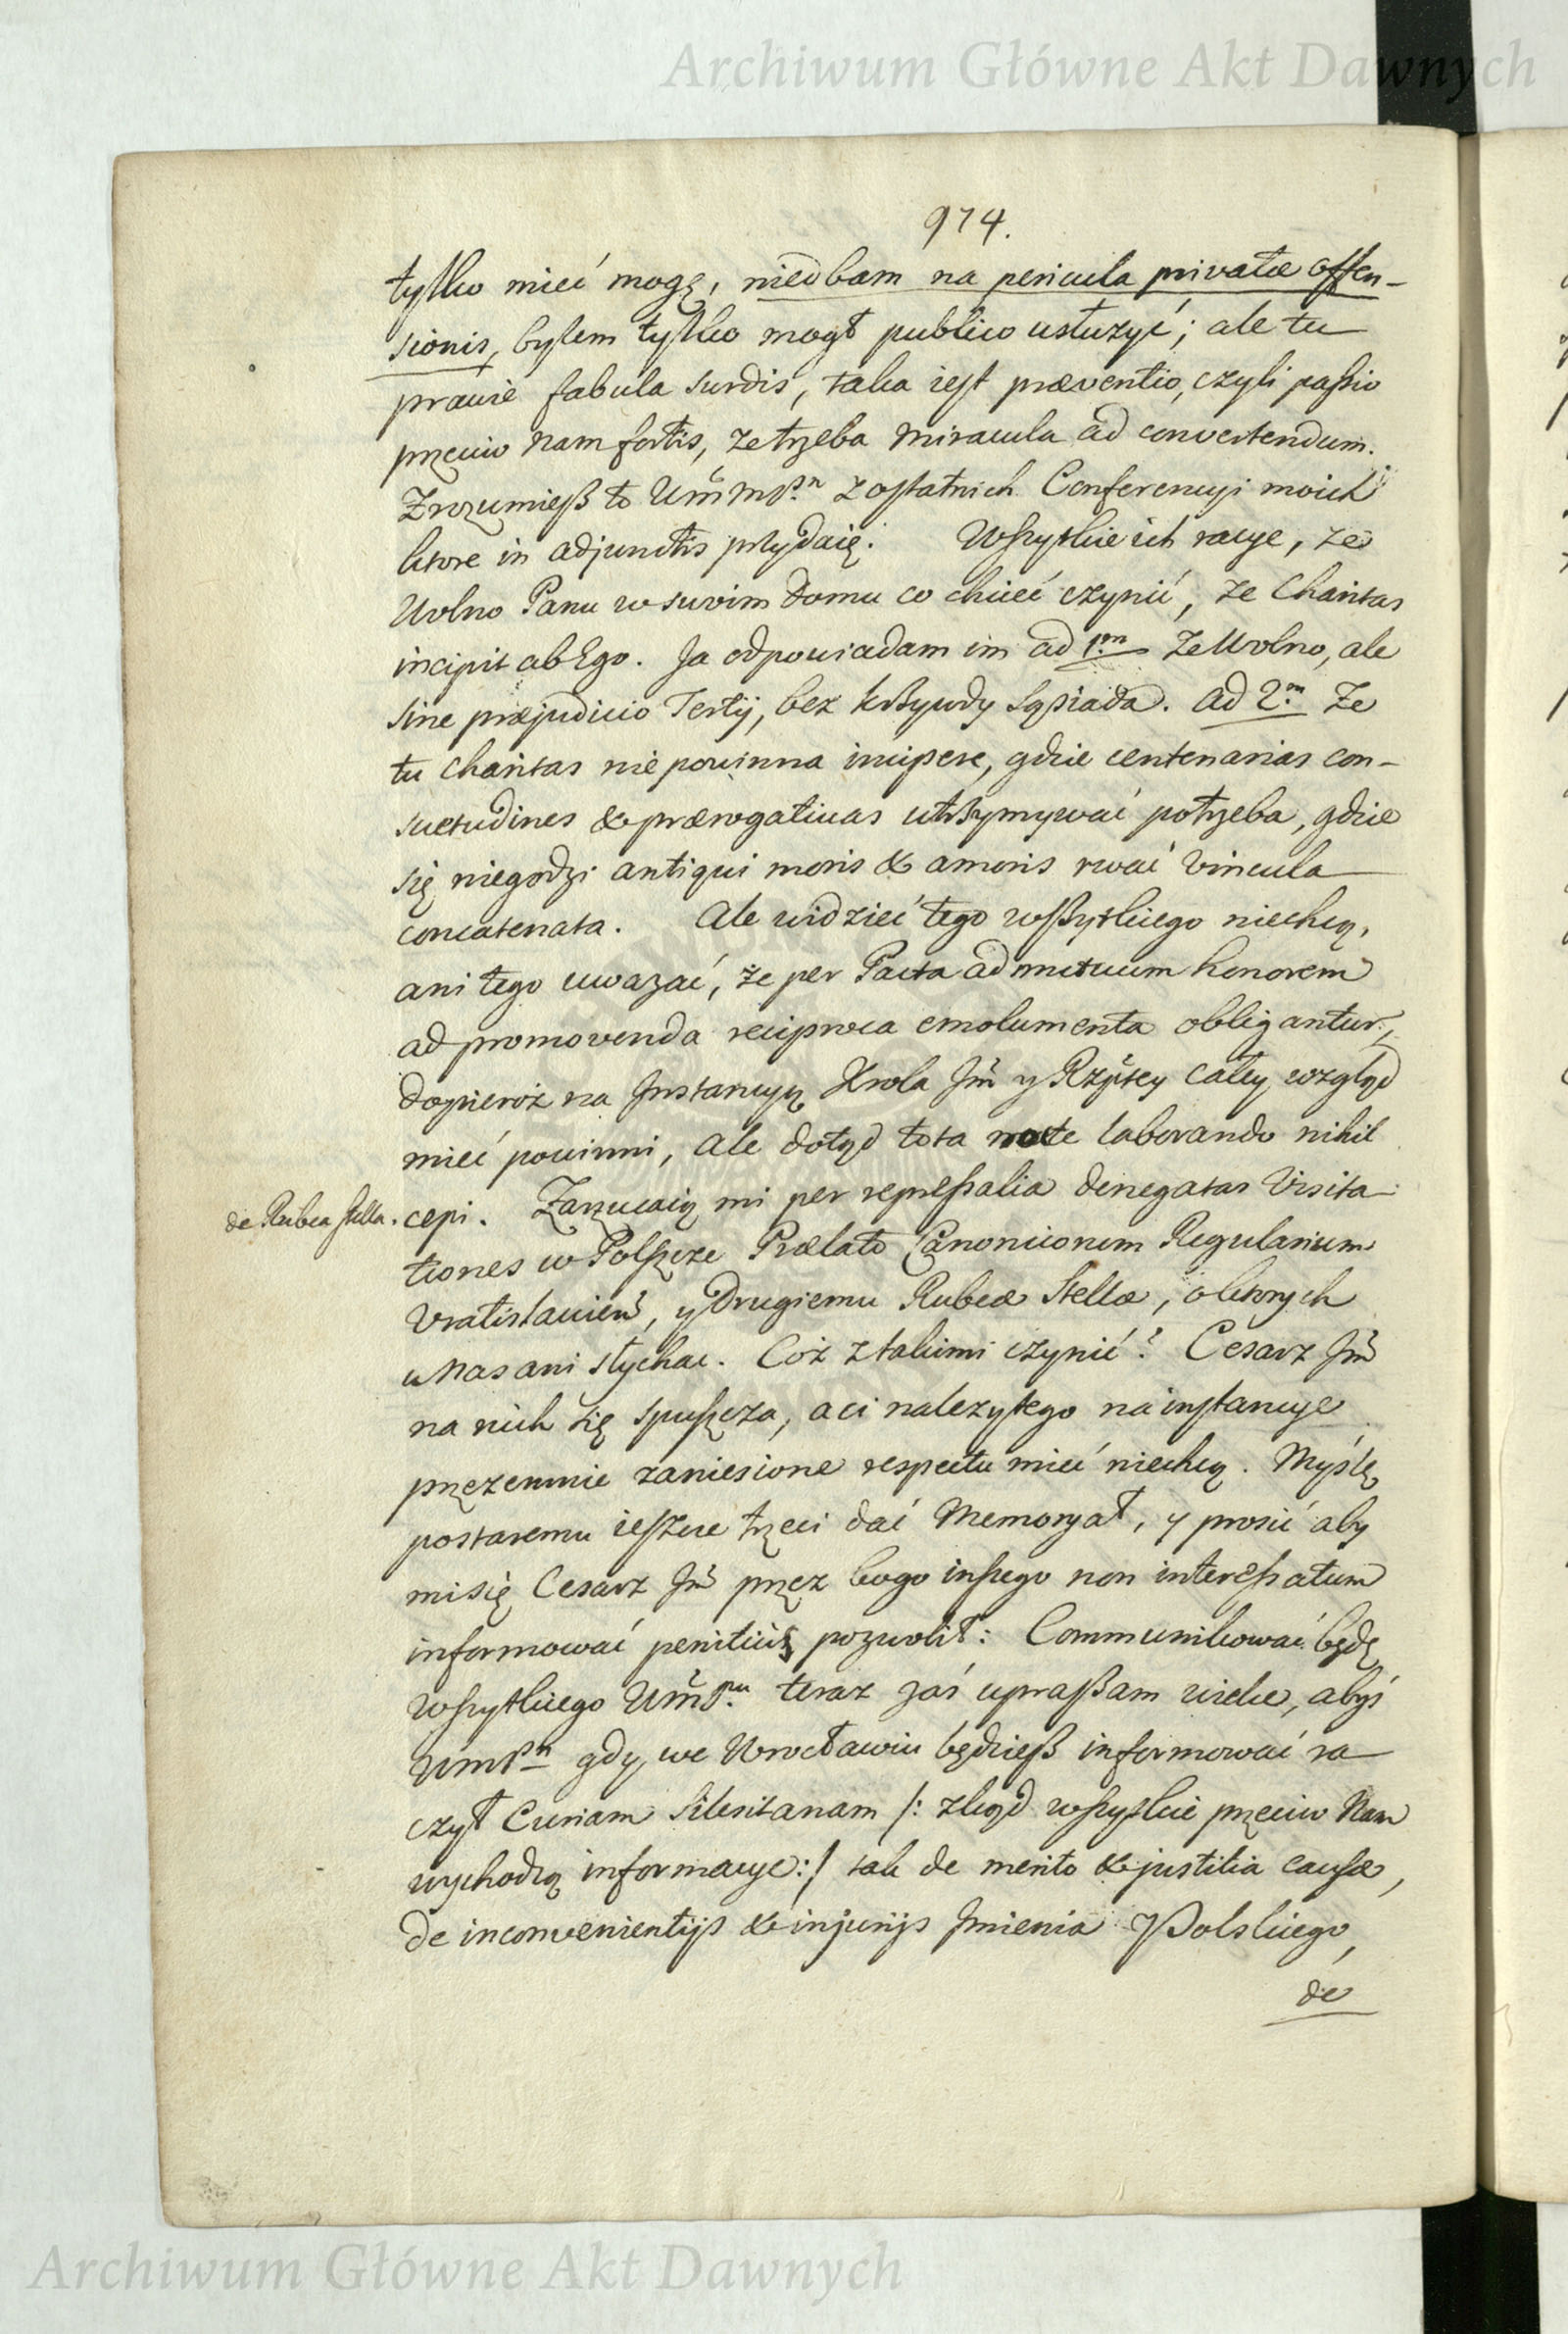 Archiwum Główne Akt Dawnych
974.
tylko mieć mogę, niedbam na pericula privatæ offen-
sionis, bylem tylko mogł publico usłużyć; ale tu
prawie fabula surdis, taka iest præventio, czyli passio
przeciw nam fortis, że trzeba miracula ad convertendum.
Zrozumiesz to z ostatnich Conferencyi moich
ktore in adjunctis przydaię. Wszytkie ich racye, że
Wolno Panu w swoim domu co chcieć czynić, że Charitas
incipit ab Ego. Ja odpowiadam im ad 1m że Wolno, ale
sine præjudicio Tertij, bez krzywdy Sąsiada. ad 2m że
tu charitas nie powinna incipere, gdzie centenarias con-
suetudines & prærogativas utrzymywać potrzeba, gdzie
się niegodzi antiqui moris & amoris rwać vincula
concatenata. Ale widzieć tego wszytkiego niechcą,
ani tego uważać, że per Pacta ad mutuum honorem
ad promovenda reciproca emolumenta obligantur,
dopieroż na Instancyą Krola Jm̃ y Rzptey całey wzgląd
mieć powinni, ale dotąd tota nocte laborando nihil
de Rubea stella. cepi. Zarzucaią mi per repressalia denegatas Visita-
tiones w Polszcze Prælato Canonicorum Regularium
Vratislavień, y drugiemu Rubeæ Stellæ, o ktorych
u Nas ani słychac. Coż z takimi czynić? Cesarz Jm̃
na nich się spuszcza, a ci należytego na instancye
przezemnie zaniesione respectu mieć niechcą. Myślę
postaremu ieszcze trzeci dać Memoryał, y prosić aby
mi się Cesarz Jm̃ przez kogo inszego non interessatum
informować penitius pozwolił: Communikować będę
wszytkiego teraz zaś upraszam wielce, abyś
gdy we Wrocławiu będziesz informować ra-
czył Curiam Silesitanam /: zkąd wszytkie przeciw Nam
wychodzą informacye:/ tak de merito & justitia causæ,
de inconvenientijs & injurijs Jmienia Polskiego,
de
Archiwum Główne Akt Dawnych